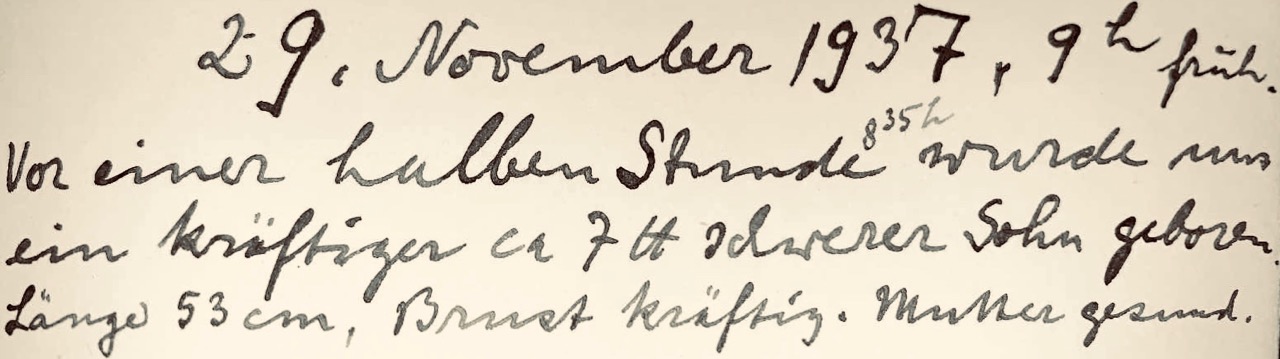 29. November 1937, 9h früh.
Vor einer halben Stunde 8 35h wurde uns
ein kräftiger ca 7 ℔ schwerer Sohn geboren.
Länge 53 cm, Brust kräftig. Mutter gesund.